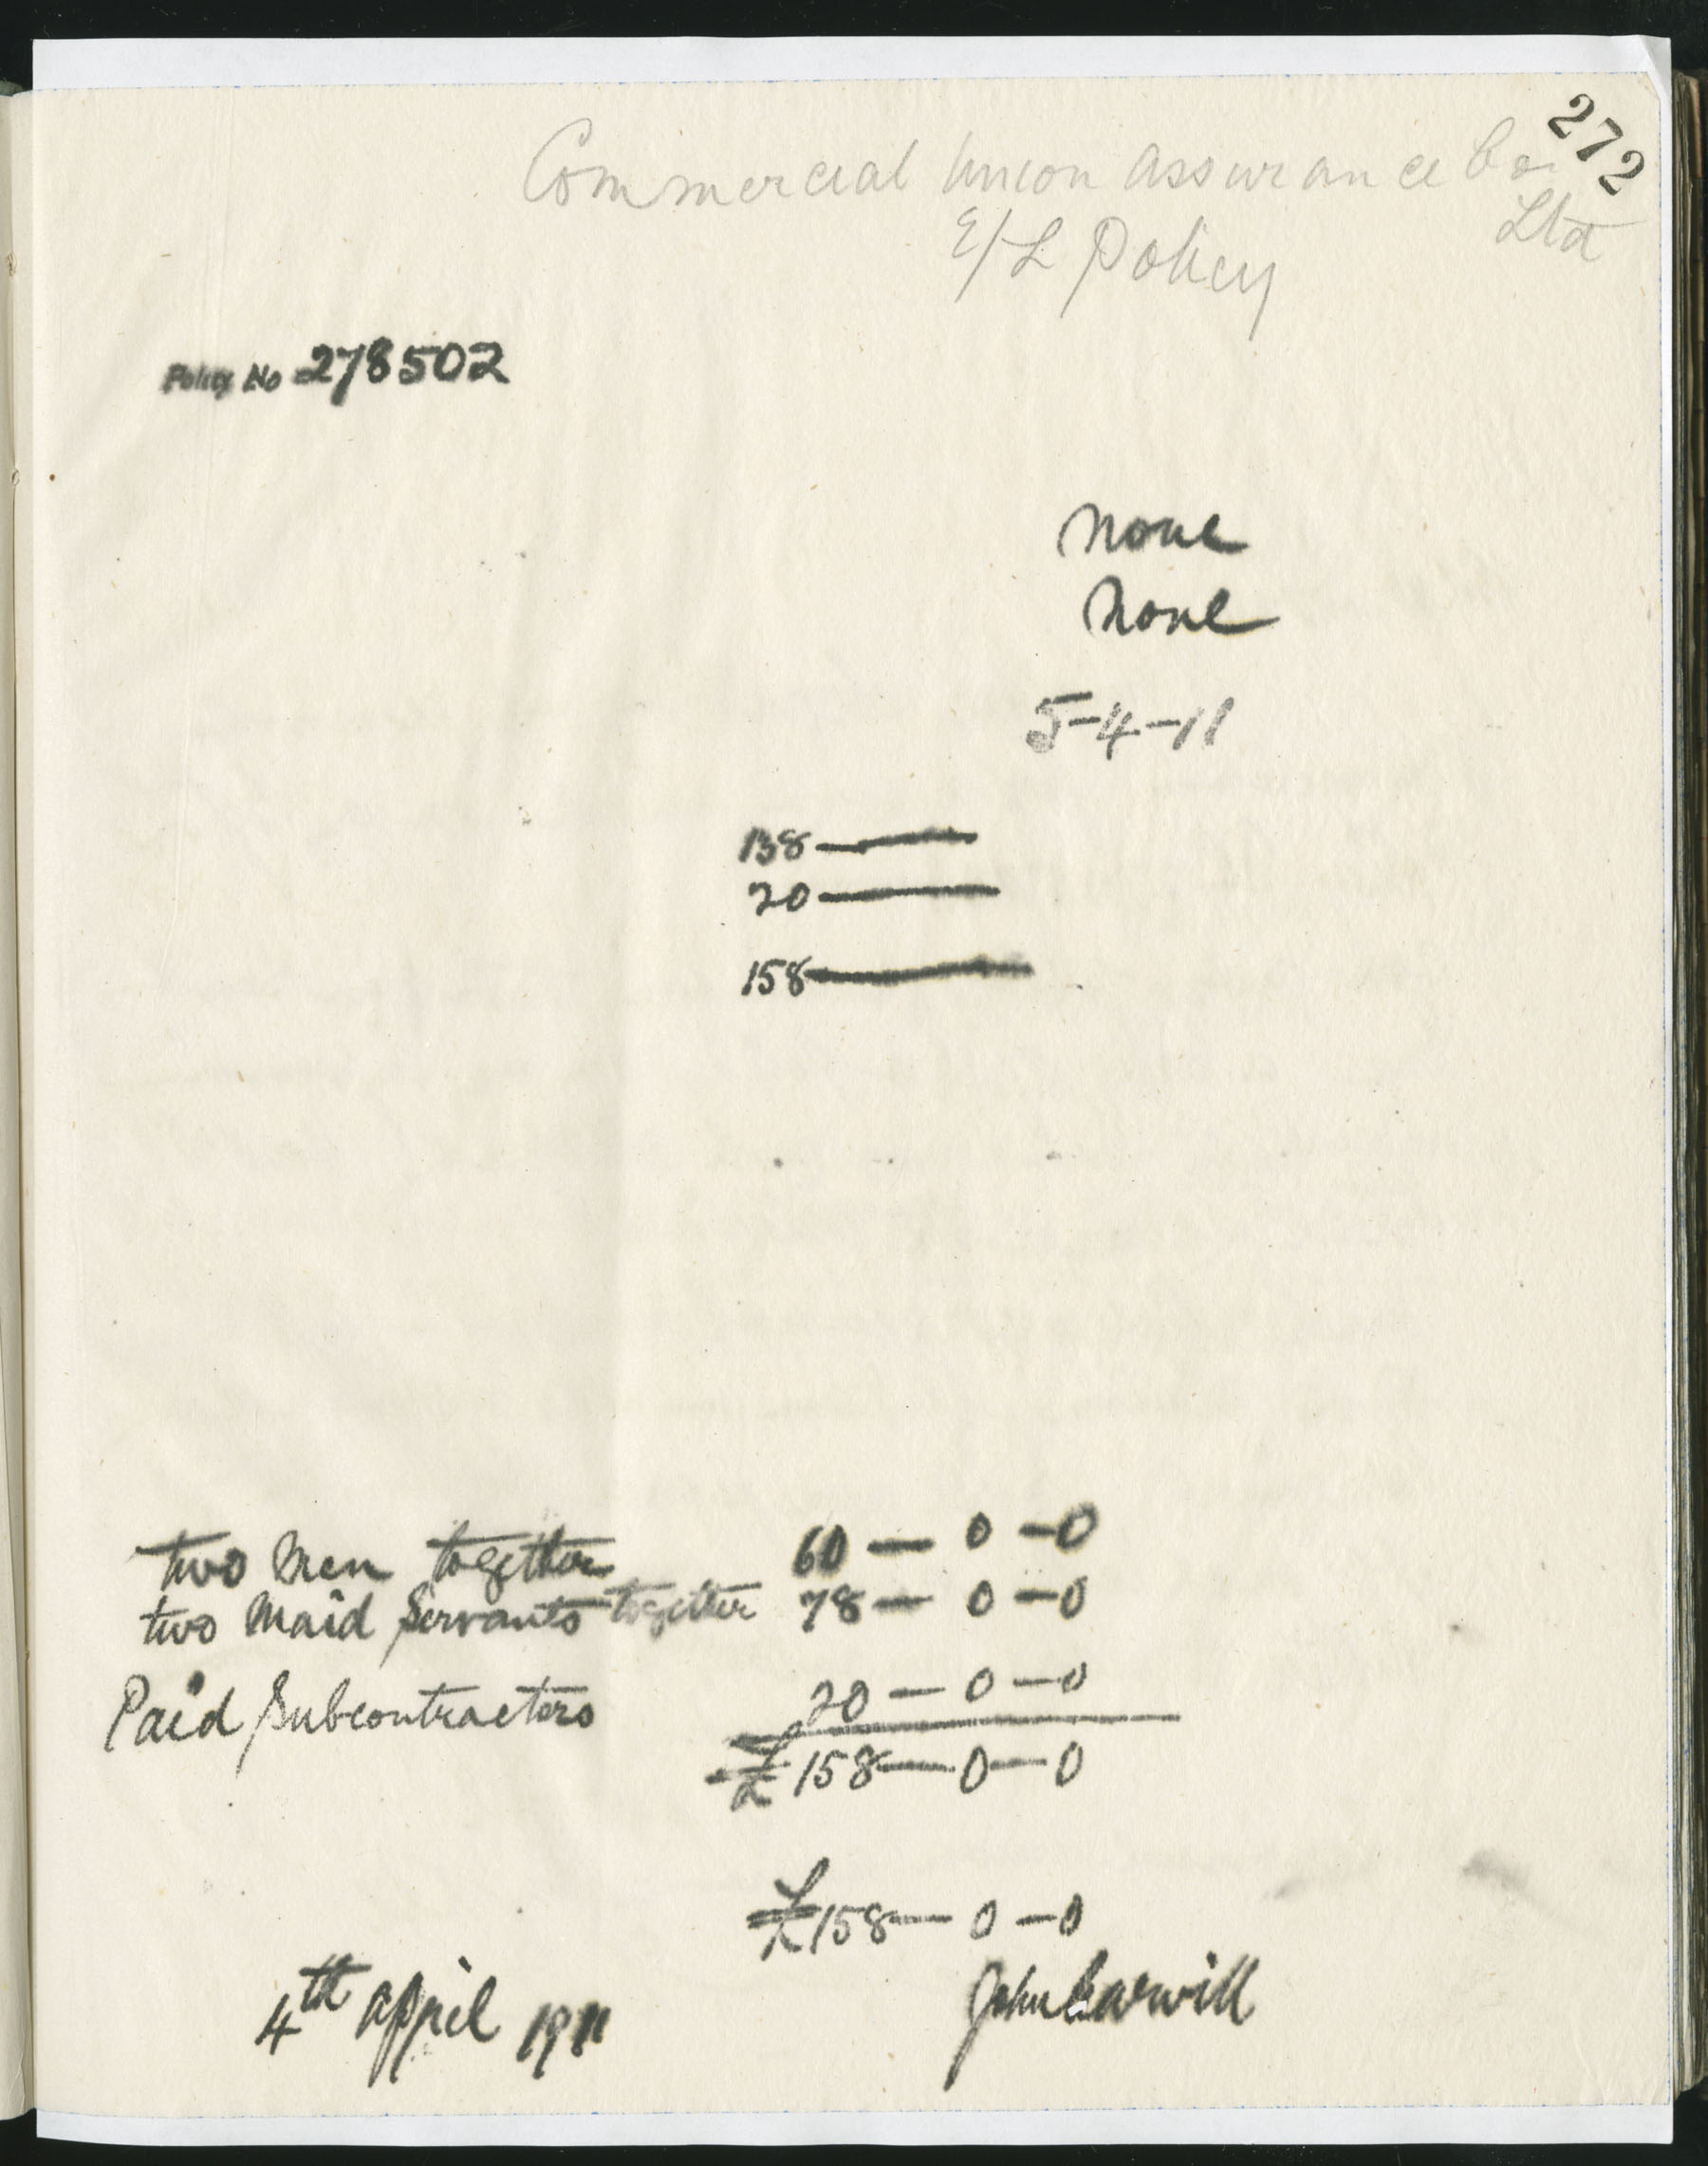 272
Commercial Union Assurance Co.
Ltd
E/L Policy
Policy No 278502
None
None
5-4-11
138—
20—
158—
two Men together 60 — 0 — 0
two Maid Servants together 78 — 0 — 0
Paid Subcontractors 20 — 0 — 0
£158 — 0 — 0
£158 — 0 — 0
4th april 1911 John Carwill